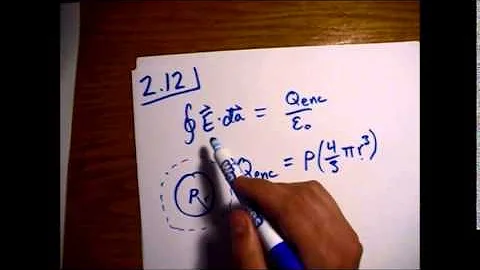 2.12
∮ E⃗ · da⃗ = Qenc / ε₀
Qenc = ρ(4/3 πr³)
R